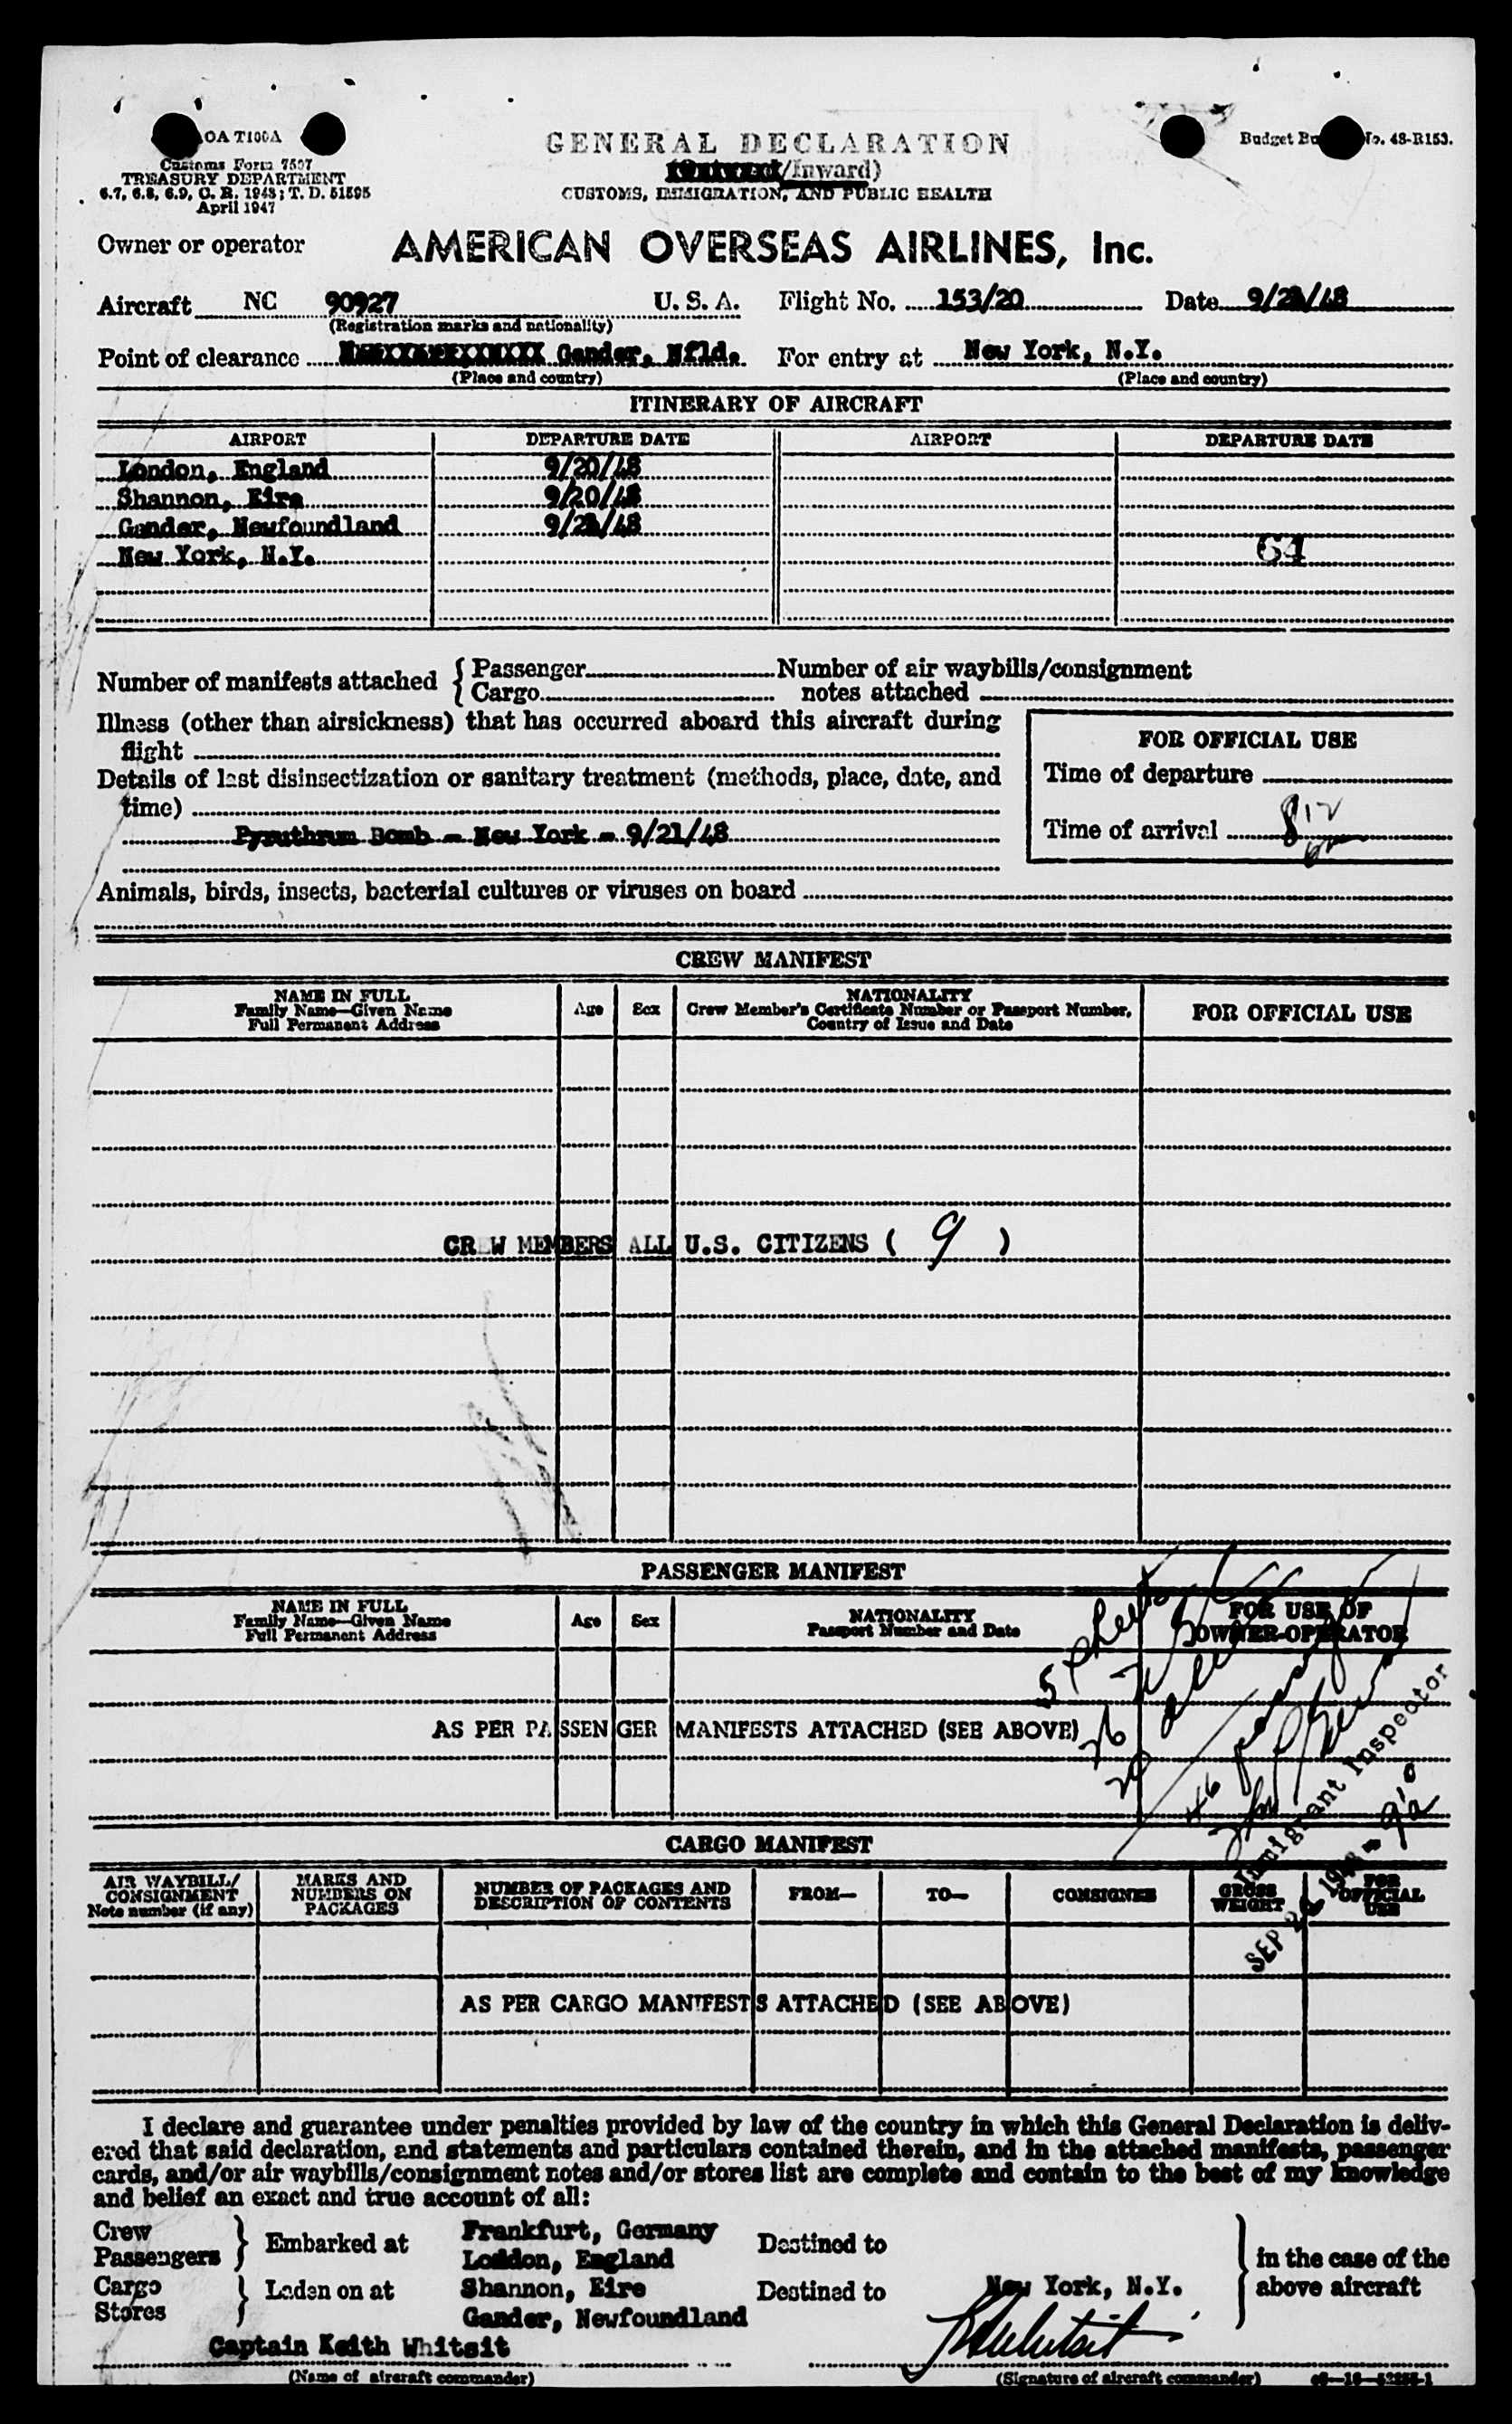 OA T100A
Customs Form 7507
TREASURY DEPARTMENT
6.7, 6.8, 6.9, C. R. 1943; T. D. 51595
April 1947
GENERAL DECLARATION
/Inward)
CUSTOMS, IMMIGRATION, AND PUBLIC HEALTH
Budget Bu No. 48-R153.
Owner or operator AMERICAN OVERSEAS AIRLINES, Inc.
Aircraft NC 90927 U. S. A. Flight No. 153/20 Date
(Registration marks and nationality)
Point of clearance Gander, Nfld. For entry at New York, N.Y.
(Place and country) (Place and country)
ITINERARY OF AIRCRAFT
AIRPORT DEPARTURE DATE AIRPORT DEPARTURE DATE
London, England 9/20/48
Shannon, Eire 9/20/48
Gander, Newfoundland
New York, N.Y. 64
Number of manifests attached { Passenger Number of air waybills/consignment
Cargo notes attached
Illness (other than airsickness) that has occurred aboard this aircraft during
flight
Details of last disinsectization or sanitary treatment (methods, place, date, and
time)
Pyruthrum Bomb - New York - 9/21/48
FOR OFFICIAL USE
Time of departure
Time of arrival 8 12
Animals, birds, insects, bacterial cultures or viruses on board
CREW MANIFEST
NAME IN FULL
Family Name—Given Name
Full Permanent Address
Age Sex
NATIONALITY
Crew Member's Certificate Number or Passport Number,
Country of Issue and Date
FOR OFFICIAL USE
CR W MEMBERS ALL U.S. CITIZENS ( 9 )
PASSENGER MANIFEST
NAME IN FULL
Family Name—Given Name
Full Permanent Address
Age Sex
NATIONALITY
Passport Number and Date
FOR USE OF
OWNER-OPERATOR
5 sheets
AS PER PASSENGER MANIFESTS ATTACHED (SEE ABOVE)
Immigrant Inspector
CARGO MANIFEST
AIR WAYBILL/
CONSIGNMENT
Note number (if any)
MARKS AND
NUMBERS ON
PACKAGES
NUMBER OF PACKAGES AND
DESCRIPTION OF CONTENTS
FROM— TO— CONSIGNEE
GROSS
WEIGHT
FOR
OFFICIAL
USE
SEP 1948
AS PER CARGO MANIFESTS ATTACHED (SEE ABOVE)
I declare and guarantee under penalties provided by law of the country in which this General Declaration is deliv-
ered that said declaration, and statements and particulars contained therein, and in the attached manifests, passenger
cards, and/or air waybills/consignment notes and/or stores list are complete and contain to the best of my knowledge
and belief an exact and true account of all:
Crew
Passengers } Embarked at
Cargo
Stores } Laden on at
Frankfurt, Germany
London, England
Shannon, Eire
Gander, Newfoundland
Destined to
Destined to New York, N.Y.
in the case of the
above aircraft
Captain Keith Whitsit KWhitsit
(Name of aircraft commander) (Signature of aircraft commander)